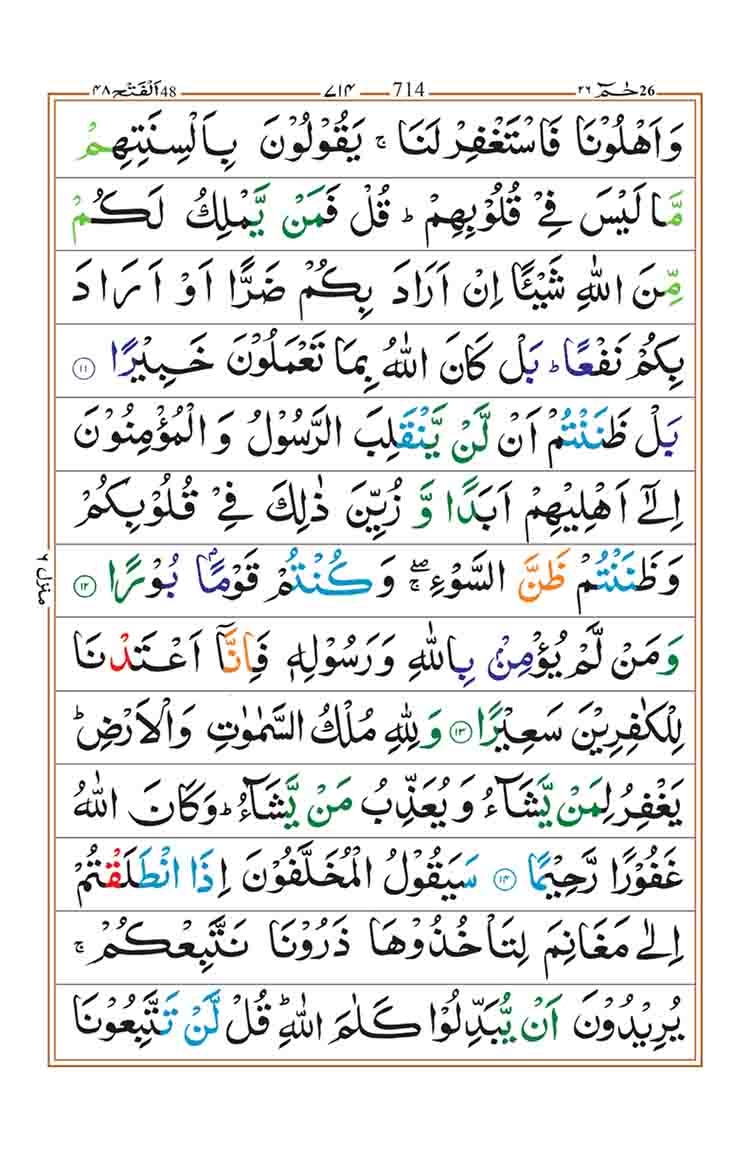 حٰمٓ 26 ۲۶ 714 ۷۱۴ اَلْفَتْح 48 ۴۸
وَاَهْلُوْنَا فَاسْتَغْفِرْ لَنَا ۚ يَقُوْلُوْنَ بِاَلْسِنَتِهِمْ
مَّا لَيْسَ فِيْ قُلُوْبِهِمْ ؕ قُلْ فَمَنْ يَّمْلِكُ لَكُمْ
مِّنَ اللّٰهِ شَيْـًٔا اِنْ اَرَادَ بِكُمْ ضَرًّا اَوْ اَرَادَ
بِكُمْ نَفْعًا ؕ بَلْ كَانَ اللّٰهُ بِمَا تَعْمَلُوْنَ خَبِيْرًا ۱۱
بَلْ ظَنَنْتُمْ اَنْ لَّنْ يَّنْقَلِبَ الرَّسُوْلُ وَالْمُؤْمِنُوْنَ
اِلٰٓى اَهْلِيْهِمْ اَبَدًا وَّ زُيِّنَ ذٰلِكَ فِيْ قُلُوْبِكُمْ
وَظَنَنْتُمْ ظَنَّ السَّوْءِ ۖۚ وَكُنْتُمْ قَوْمًۢا بُوْرًا ۱۲
وَمَنْ لَّمْ يُؤْمِنْۢ بِاللّٰهِ وَرَسُوْلِهٖ فَاِنَّاۤ اَعْتَدْنَا
لِلْكٰفِرِيْنَ سَعِيْرًا ۱۳ وَلِلّٰهِ مُلْكُ السَّمٰوٰتِ وَالْاَرْضِ ؕ
يَغْفِرُ لِمَنْ يَّشَآءُ وَيُعَذِّبُ مَنْ يَّشَآءُ ؕ وَكَانَ اللّٰهُ
غَفُوْرًا رَّحِيْمًا ۱۴ سَيَقُوْلُ الْمُخَلَّفُوْنَ اِذَا انْطَلَقْتُمْ
اِلٰى مَغَانِمَ لِتَاْخُذُوْهَا ذَرُوْنَا نَتَّبِعْكُمْ ۚ
يُرِيْدُوْنَ اَنْ يُّبَدِّلُوْا كَلٰمَ اللّٰهِ ؕ قُلْ لَّنْ تَتَّبِعُوْنَا
منزل ۶